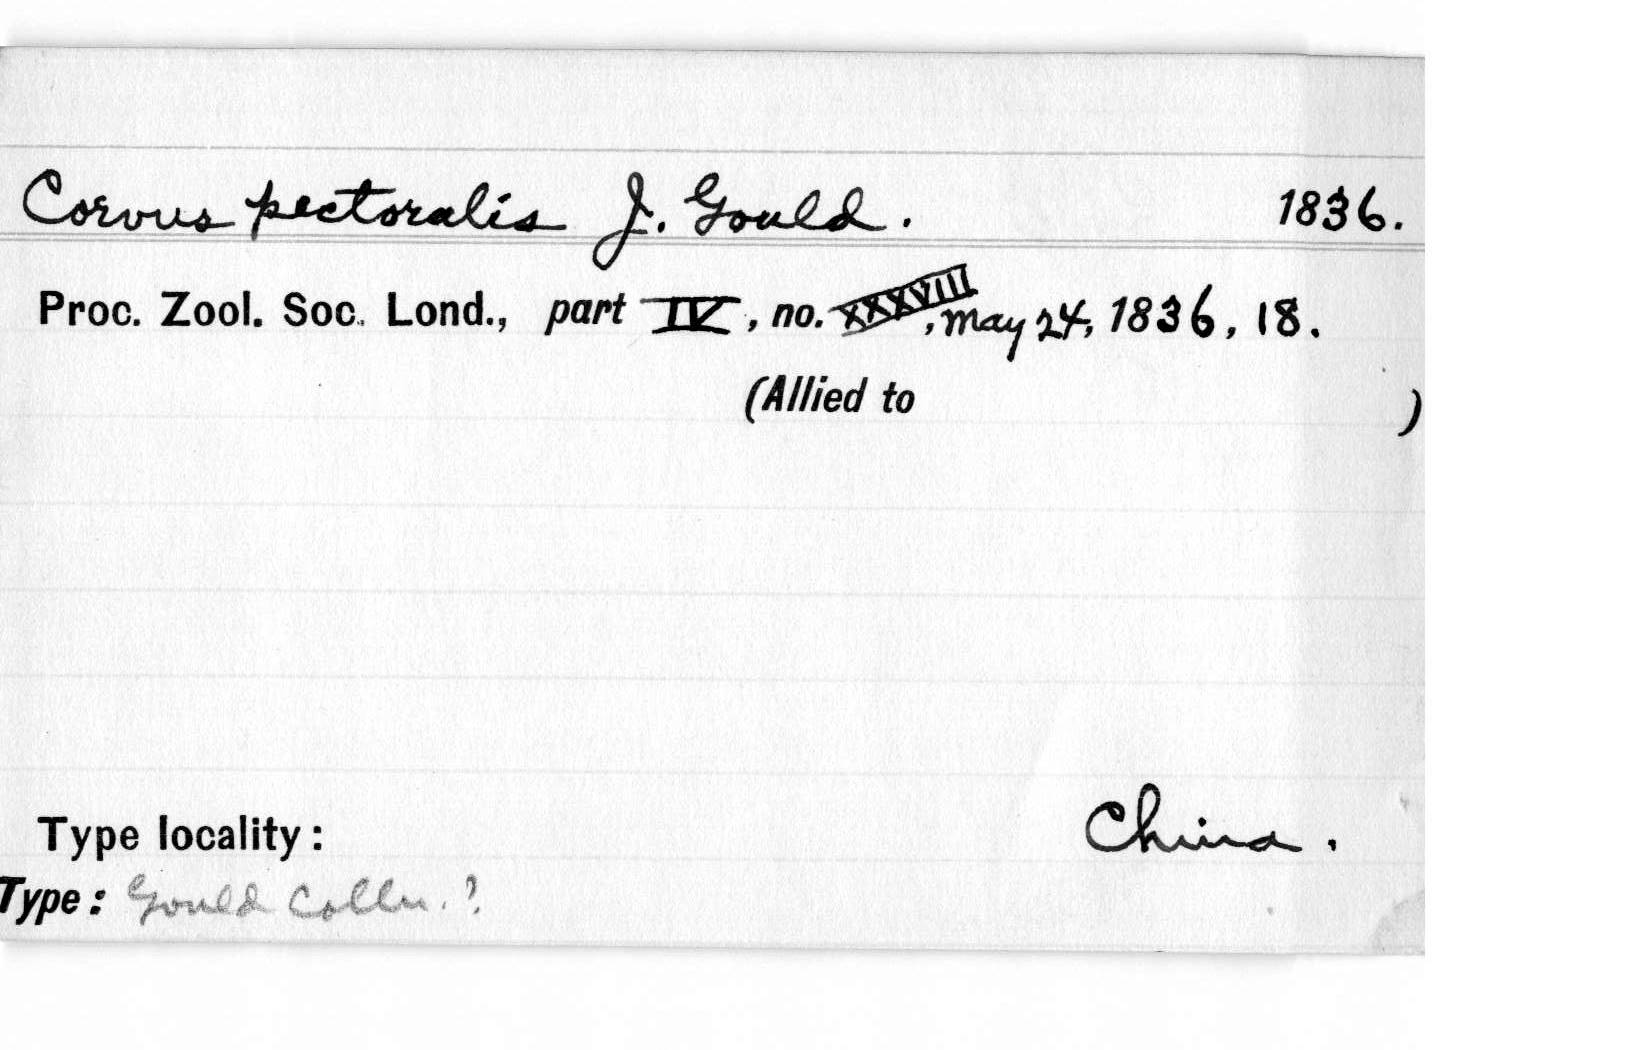 Corvus pectoralis J. Gould. 1836.
Proc. Zool. Soc. Lond., part IV, no. XXXVIII, May 24, 1836, 18.
(Allied to )
Type locality: China.
Type: Gould Colln.?